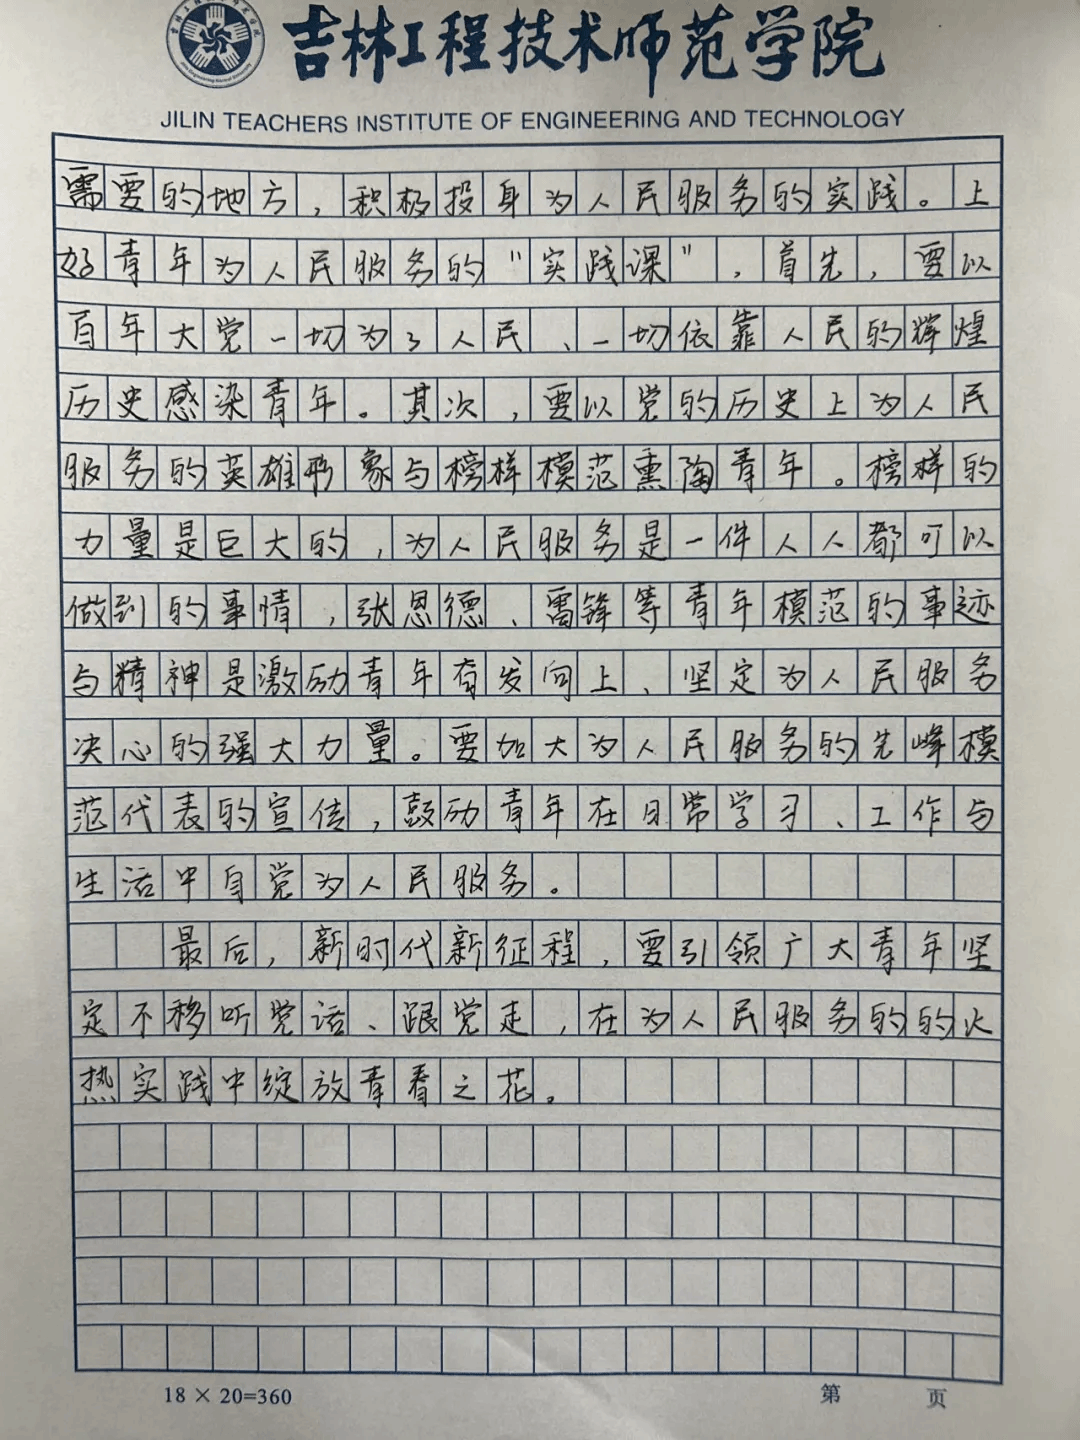 吉林工程技术师范学院
JILIN TEACHERS INSTITUTE OF ENGINEERING AND TECHNOLOGY
需要的地方，积极投身为人民服务的实践。上
好青年为人民服务的"实践课"，首先，要以
百年大党一切为了人民、一切依靠人民的辉煌
历史感染青年。其次，要以党的历史上为人民
服务的英雄形象与榜样模范熏陶青年。榜样的
力量是巨大的，为人民服务是一件人人都可以
做到的事情，张思德、雷锋等青年模范的事迹
与精神是激励青年奋发向上、坚定为人民服务
决心的强大力量。要加大为人民服务的先峰模
范代表的宣传，鼓励青年在日常学习、工作与
生活中自觉为人民服务。
最后，新时代新征程，要引领广大青年坚
定不移听党话、跟党走，在为人民服务的的火
热实践中绽放青春之花。
18 × 20=360
第 页